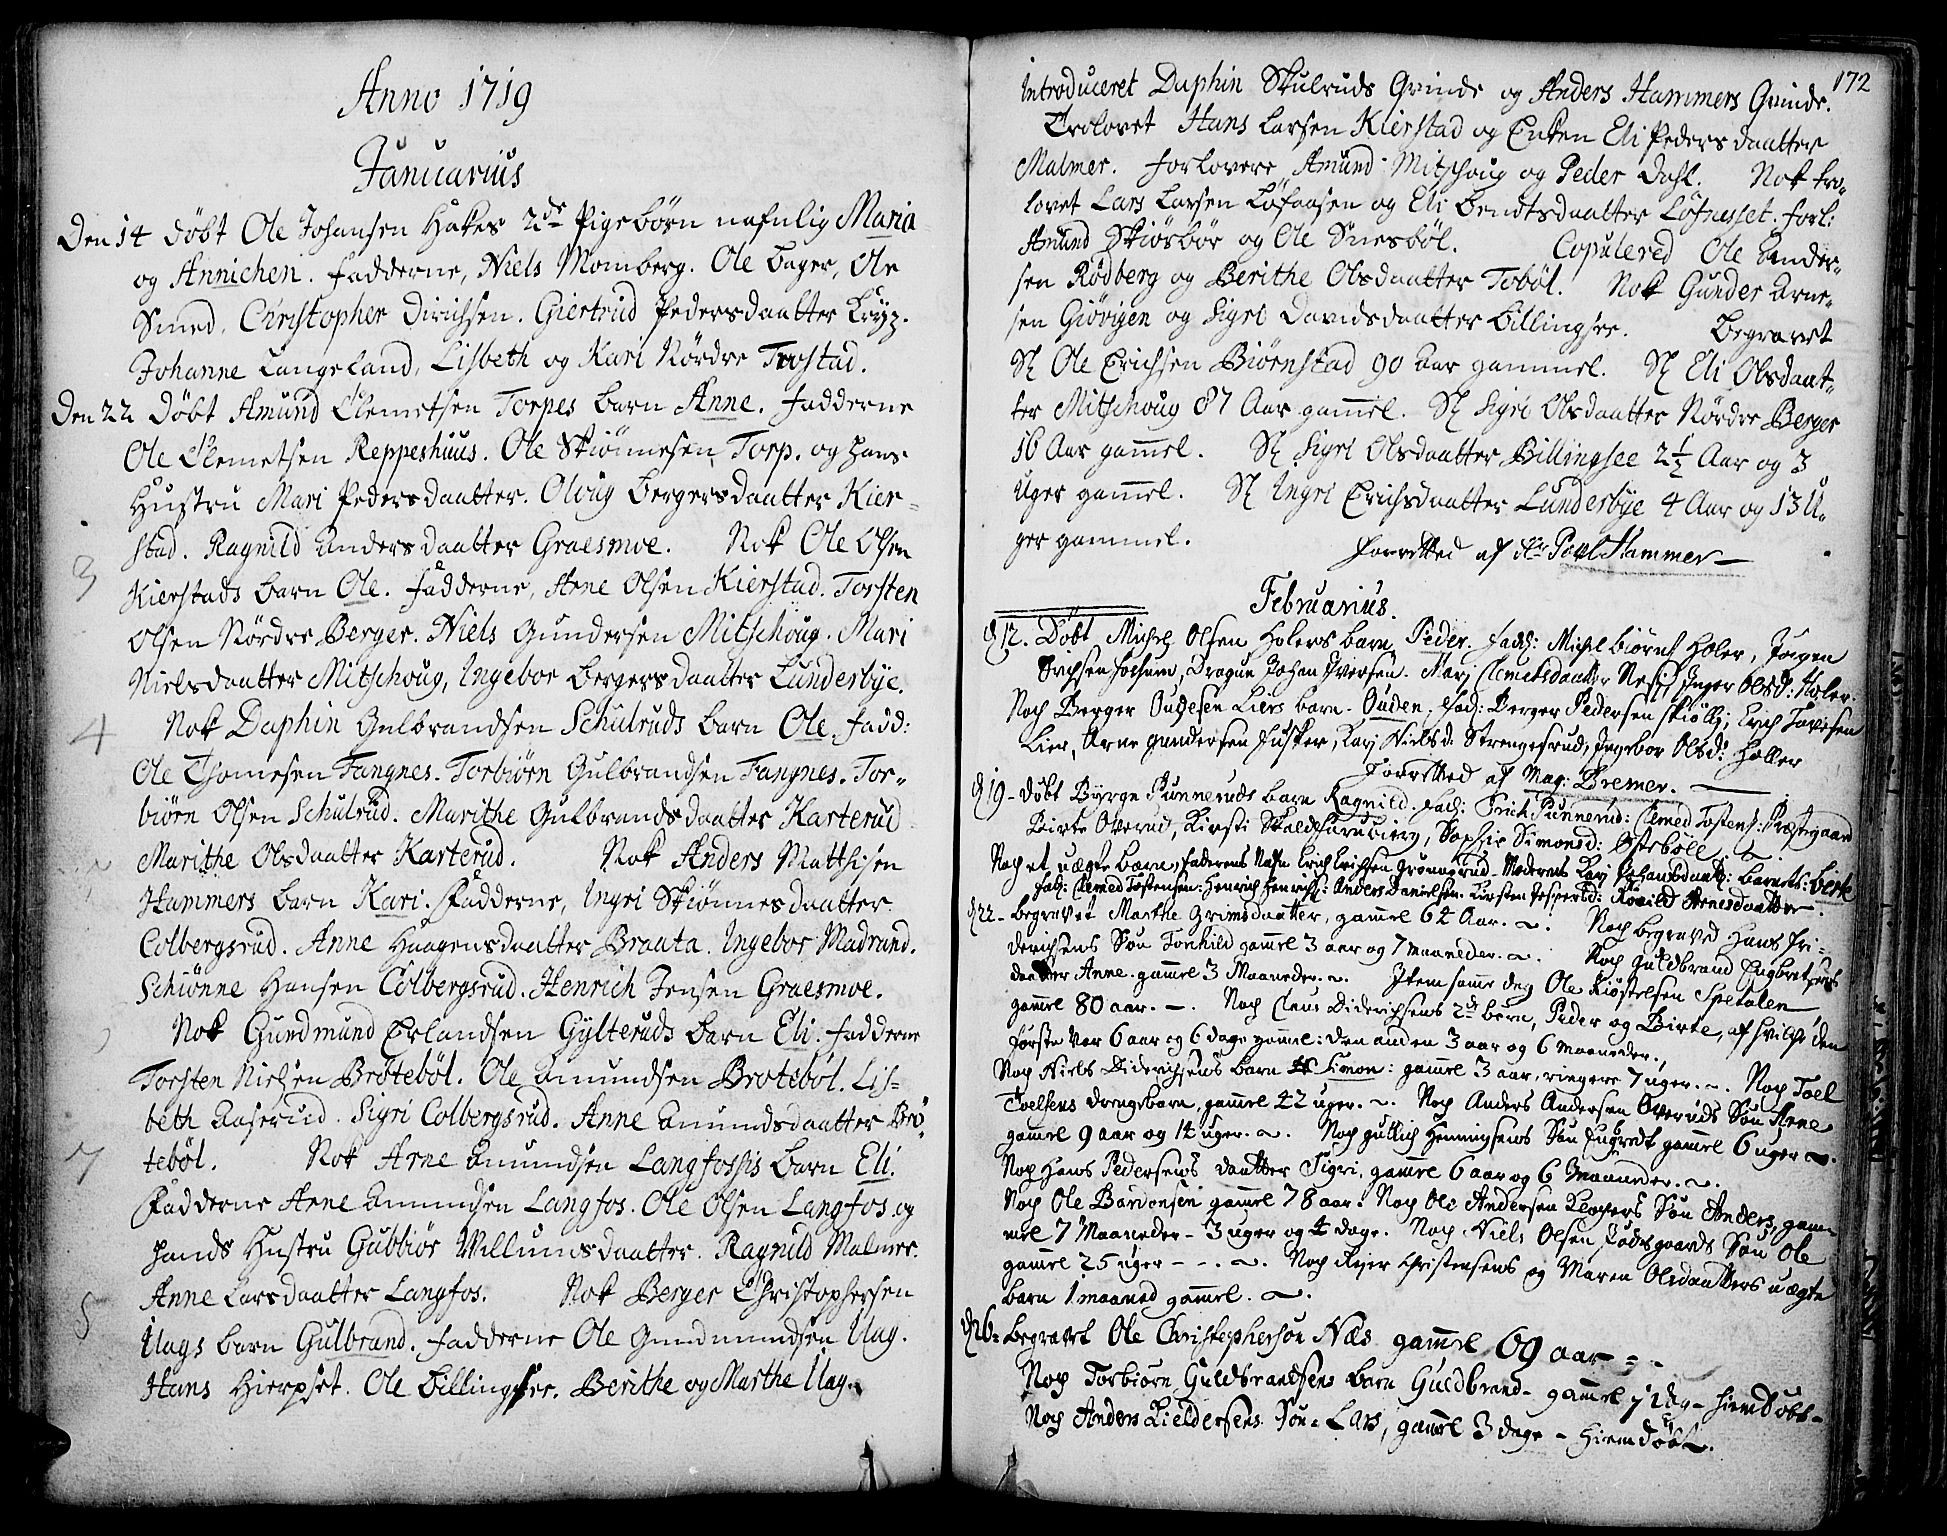 Anno 1719
Januarius
Den 14 Döbt Ole Johansen Hakes 2de Pigebörn nafnlig Maria
og Annichen. Fadderne, Niels Momberg. Ole Bager, Ole
Smed, Christopher Dirichsen. Giertrud Pedersdaatter Kryz.
Johanne Langeland, Lisbeth og Kari Nördre Trostad.
Den 22 Döbt Amund Clemetsen Torpes barn Anne. Fadderne
Ole Clemetsen Reppeshuus. Ole Skiönnesen Torp. og hans
Hustru Mari Pedersdaatter. Oloug Bergersdaatter Kier-
stad. Ragnild Andersdaatter Graesmoe. Nok Ole Olsen
3
Kierstads barn Ole. Fadderne, Arne Olsen Kierstad. Torsten
Olsen Nördre Berger. Niels Gundersen Mitschoug. Mari
Nielsdaatter Mitschoug, Ingebor Bergersdaatter Lunderbye.
4
Nok Daphin Gulbrandsen Schulruds barn Ole. Fadd:
Ole Thomesen Fangnes. Torbiörn Gulbrandsen Fangnes. Tor-
biörn Olsen Schulrud. Marithe Gulbrandsdaatter Karterud
Marithe Olsdaatter Karterud. Nok Anders Matthisen
Hammers barn Kari. Fadderne, Ingri Skiönnesdaatter
Colbergsrud. Anne Haagensdaatter Braata. Ingebor Madrand.
Schiönne Hansen Colbergsrud. Henrich Jensen Graesmoe.
Nok Gundmund Erlandsen Gylteruds barn Eli. Fadderne
Torsten Nielsen Bröteböl. Ole Amundsen Bröteböl. Lis-
beth Aaserud. Sigri Colbergsrud. Anne Amundsdaatter Brö
7
teböl. Nok Arne Amundsen Langfossis barn Eli.
Fadderne Arne Amundsen Langfos. Ole Olsen Langfos og
hands Hustru Gubbiör Willumsdaatter. Ragnild Malmer.
Anne Larsdaatter Langfos. Nok Berger Christophersen
8
Uags barn Gulbrand. Fadderne Ole Gundmundsen Uag.
Hans Hierpset. Ole Billingsee. Berithe og Marthe Uag.
172
Introduceret Daphin Skulruds Qvinde og Anders Hammers Qvinde.
Trolovet Hans Larsen Kierstad og Enken Eli Pedersdaatter
Malmer. Forlovere Amund Mitschoug og Peder Dahl. Nok tro-
lovet Lars Larsen Löfaasen og Eli Bendtsdaatter Löfnesset. Forl:
Amund Skiörbör og Ole Snesböl. Copulered Ole Ander-
sen Rödberg og Berithe Olsdaatter Toböl. Nok Gunder Arne-
sen Giövigen og Sigri Davidsdaatter Billingsee. Begravet
Sl Ole Erichsen Biörnstad 90 Aar gammel. Sl Eli Olsdaat-
ter Mitschoug 87 Aar gammel. Sl Sigri Olsdaatter Nördre Berger
16 Aar gammel. Sl Sigri Olsdaatter Billingsee 2½ Aar og 3
Uger gammel. Sl Ingri Erichsdaatter Lunderbye 4 Aar og 13 U-
ger gammel.
Forretted af Hr Poul Hammer
Februarius.
d 12. Döbt Michel Olsen Holers barn Peder. Fadd: Michel Biörnsen Holer, Jörgen
Erichsen Holhem, Dragun Johan Iversen. Mari Clemetsdaatter Nesi, Inger Olsd: Holer.
Noch Berger Oudesen Liers barn. Ouden. Fad: Berger Pedersen Skiölli; Erich Tovesen
Lier, Arne Gundersen Fusker, Kari Nielsd: Strengelsrud, Ingebor Olsd: Holler
Forretted af Mag: Bremer.
d 19 - döbt Byrge Runneruds barn Ragnild. Fad: Erich Runnerud: Clemed Tostens: Prestgaard
Birte Overud, Kirsti Skaldhuusbierg, Sophie Simonsd: Österböll.
Noch et uægte barn, faderens Nafn Erich Erichsen Grönnerud. Moderens Kari Johansdaatt: barnets: Birte
Fad: Clemed Tostensen: Henrich Henrichs: Anders Danielsen. Kirsten Jespersd: Ronild Arnesdaatter.
d 22 - begravet Marthe Grimsdaatter, gammel 64 Aar. Noch begraved Hans Fri-
derichsens Sön Torkild gammel 3 aar og 7 maaneder. Noch Guldbrand Engbretsens
daatter Anne gammel 3 Maaneder. Item samme dag Ole Kiöstelsen Spetalen
gammel 80 aar. Noch Claus Diderichsens 2de börn, Peder og Birte, af hvilche den
förste var 6 aar og 6 dage gammel: den anden 3 aar og 6 Maaneder.
Noch Niels Diderichsens barn Simon: gammel 3 aar, ringere 7 uger. Noch Joel
Joelsens drengebarn, gammel 22 uger. Noch Anders Andersen Overuds Sön Arne
gammel 9 aar og 14 uger. Noch Gutlich Henningsens Sön Engbret gammel 6 uger
Noch Hans Pedersens daatter Sigri, gammel 6 aar og 6 Maaneder.
Noch Ole Bardonsen gammel 78 aar. Noch Ole Andersen Klochers Sön Anders, gam-
mel 7 Maaneder - 3 uger og 4 dage. Noch Niels Olsen Rödsgaards Sön Ole
gammel 25 uger. Noch Reier Christensens og Maren Olsdaatters uægte
barn 1 maaned gammel.
d 26 = begravet Ole Christophersön Næs gammel 69 aar
Noch Torbiörn Guldbrandsens barn Guldbrand - gammel 7 dag - hiemdöbt -
Noch Anders Kieldersens Sön = Lars, gammel 3 dage - hiemdöbt.